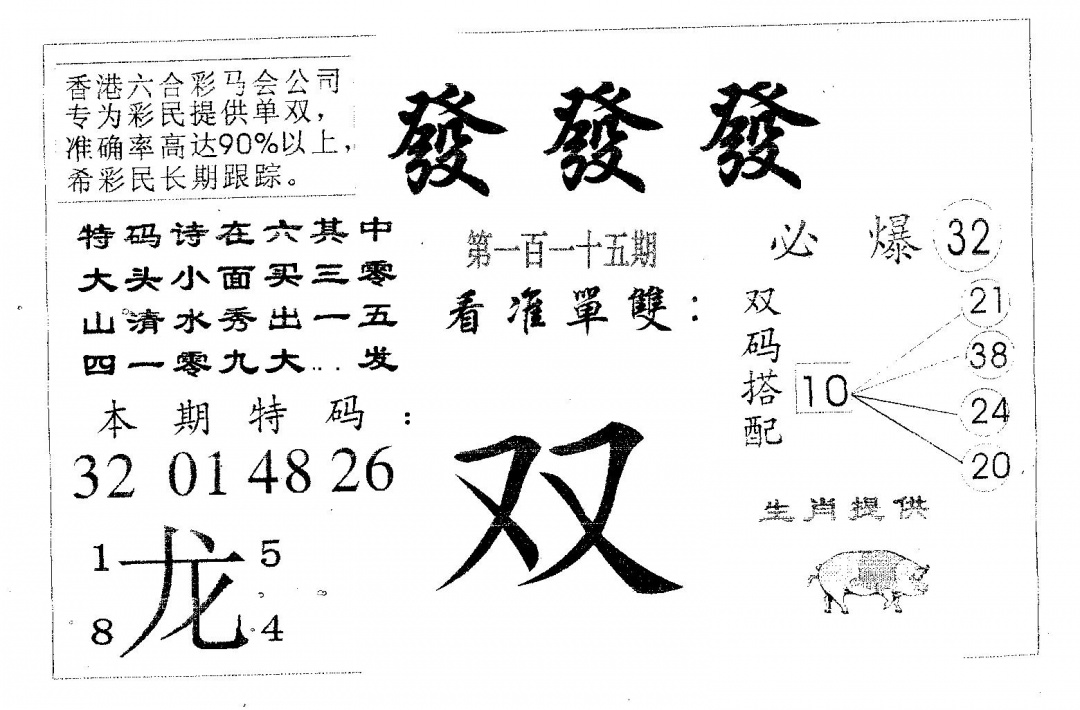 香港六合彩马会公司
专为彩民提供单双，
准确率高达90%以上，
希彩民长期跟踪。
發發發
特码诗在六其中
大头小面买三零
山清水秀出一五
四一零九大…发
第一百一十五期
看准單雙：
必爆 32
双码搭配
10
21
38
24
20
本期特码：
32 01 48 26
双
生肖提供
1 龙 5
8 4